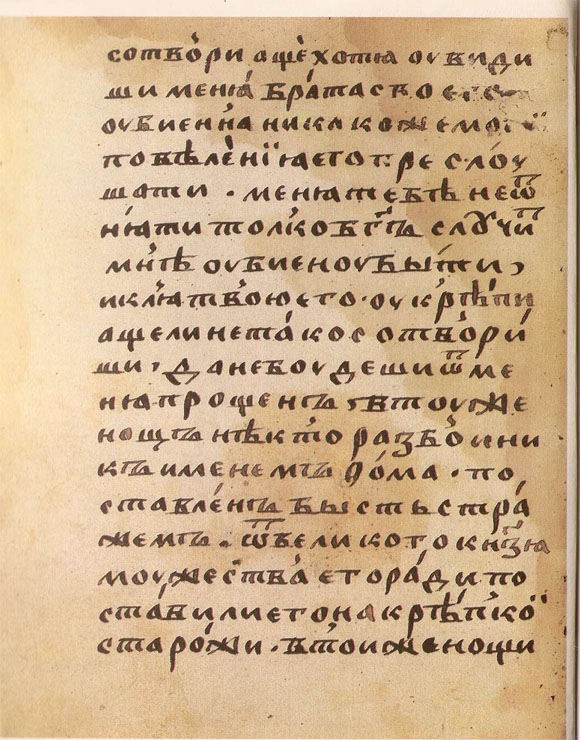 сотво́ри ащѐ хотѧ оувиди
ши менѧ бра́та своего
оубиенна никакоже мог
повѣле́нїѧ его преслоу
шати · менѧ тебѣ не ѿ
нѧ́ти то́лко бг҃ъ слꙋчит
мнѣ оубиеноу быти,
и клѧ́твою его · оукрѣпи
аще ли не та́ко сотвори́
ши · да не боудеши ѿ ме
нѧ прощенъ, втоуже
нощъ нѣкто разбо́ини
къ именемъ Ѳо́ма · по
ставле́нъ бысть стра́
жемъ · ѿ великого кн҃зѧ
моужества его ра́ди по
ста́вили его на крѣпкои
старо́жи · втоиже нощи